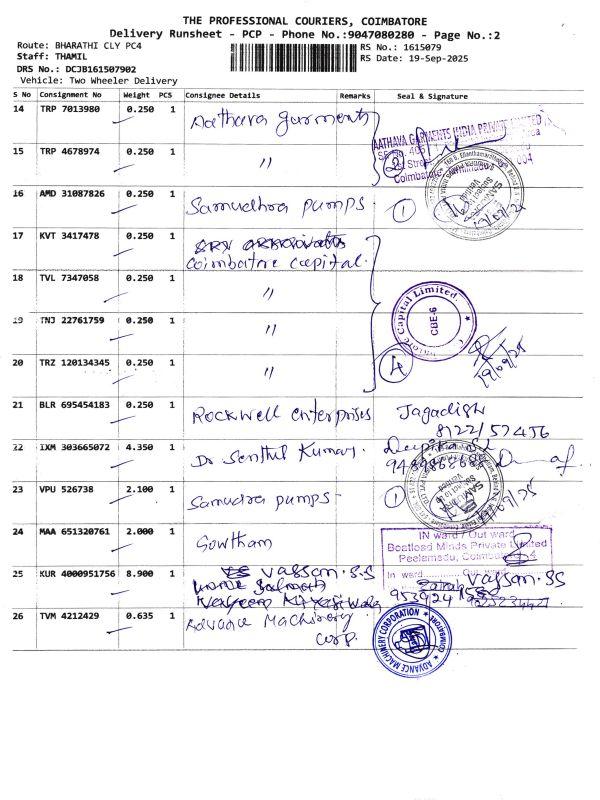 THE PROFESSIONAL COURIERS, COIMBATORE
Delivery Runsheet - PCP - Phone No.:9047080280 - Page No.:2
Route: BHARATHI CLY PC4
RS No.: 1615079
Staff: THAMIL
RS Date: 19-Sep-2025
DRS No.: DCJB161507902
Vehicle: Two Wheeler Delivery
S No Consignment No Weight PCS Consignee Details Remarks Seal & Signature
14 TRP 7013980 0.250 1 Aathava garments
AATHAVA GARMENTS INDIA PRIVATE LIMITED
15 TRP 4678974 0.250 1 〃 2
Coimbatore
16 AMD 31087826 0.250 1 Samudhra pumps. 1
17 KVT 3417478 0.250 1
Coimbatore Capital.
18 TVL 7347058 0.250 1 〃
Capital Limited.
CBE-6
19 TNJ 22761759 0.250 1 〃
20 TRZ 120134345 0.250 1 〃 4
19/09/25
21 BLR 695454183 0.250 1 Rockwell enterprises Jagadish
8122157456
22 IXM 303665072 4.350 1 Dr Senthil Kumar.
23 VPU 526738 2.100 1 Samudra pumps - 1
24 MAA 651320761 2.000 1 Gowtham
IN ward / Out ward
Boatload Minds Private Limited
Peelamedu, Coimbatore
In ward Out ward
25 KUR 4000951756 8.900 1 Vassan.S.S Vassan.SS
26 TVM 4212429 0.635 1 Advance Machinery
Corp.
ADVANCE MACHINERY CORPORATION
COIMBATORE